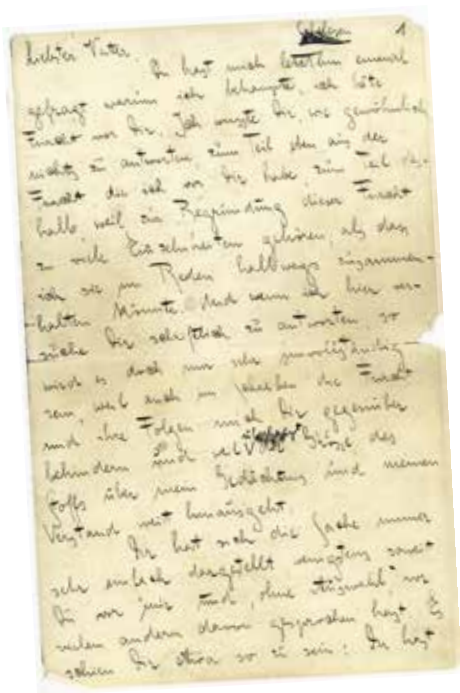 Schelesen 1
Liebster Vater,
Du hast mich letzthin einmal
gefragt warum ich behaupte, ich hätte
Furcht vor Dir. Ich wusste Dir, wie gewöhnlich,
nichts zu antworten, zum Teil eben aus der
Furcht die ich vor Dir habe, zum Teil des-
halb weil zur Begründung dieser Furcht
zu viele Einzelheiten gehören, als dass
ich sie im Reden halbwegs zusammen-
halten könnte. Und wenn ich hier ver-
suche Dir schriftlich zu antworten, so
wird es doch nur sehr unvollständig
sein, weil auch im Schreiben die Furcht
und ihre Folgen mich Dir gegenüber
behindern und weil Grösse des
Stoffs über mein Gedächtnis und meinen
Verstand weit hinausgeht.
Dir hat sich die Sache immer
sehr einfach dargestellt wenigstens soweit
Du vor mir und, ohne Auswahl, vor
vielen andern davon gesprochen hast. Es
schien Dir etwa so zu sein: Du hast